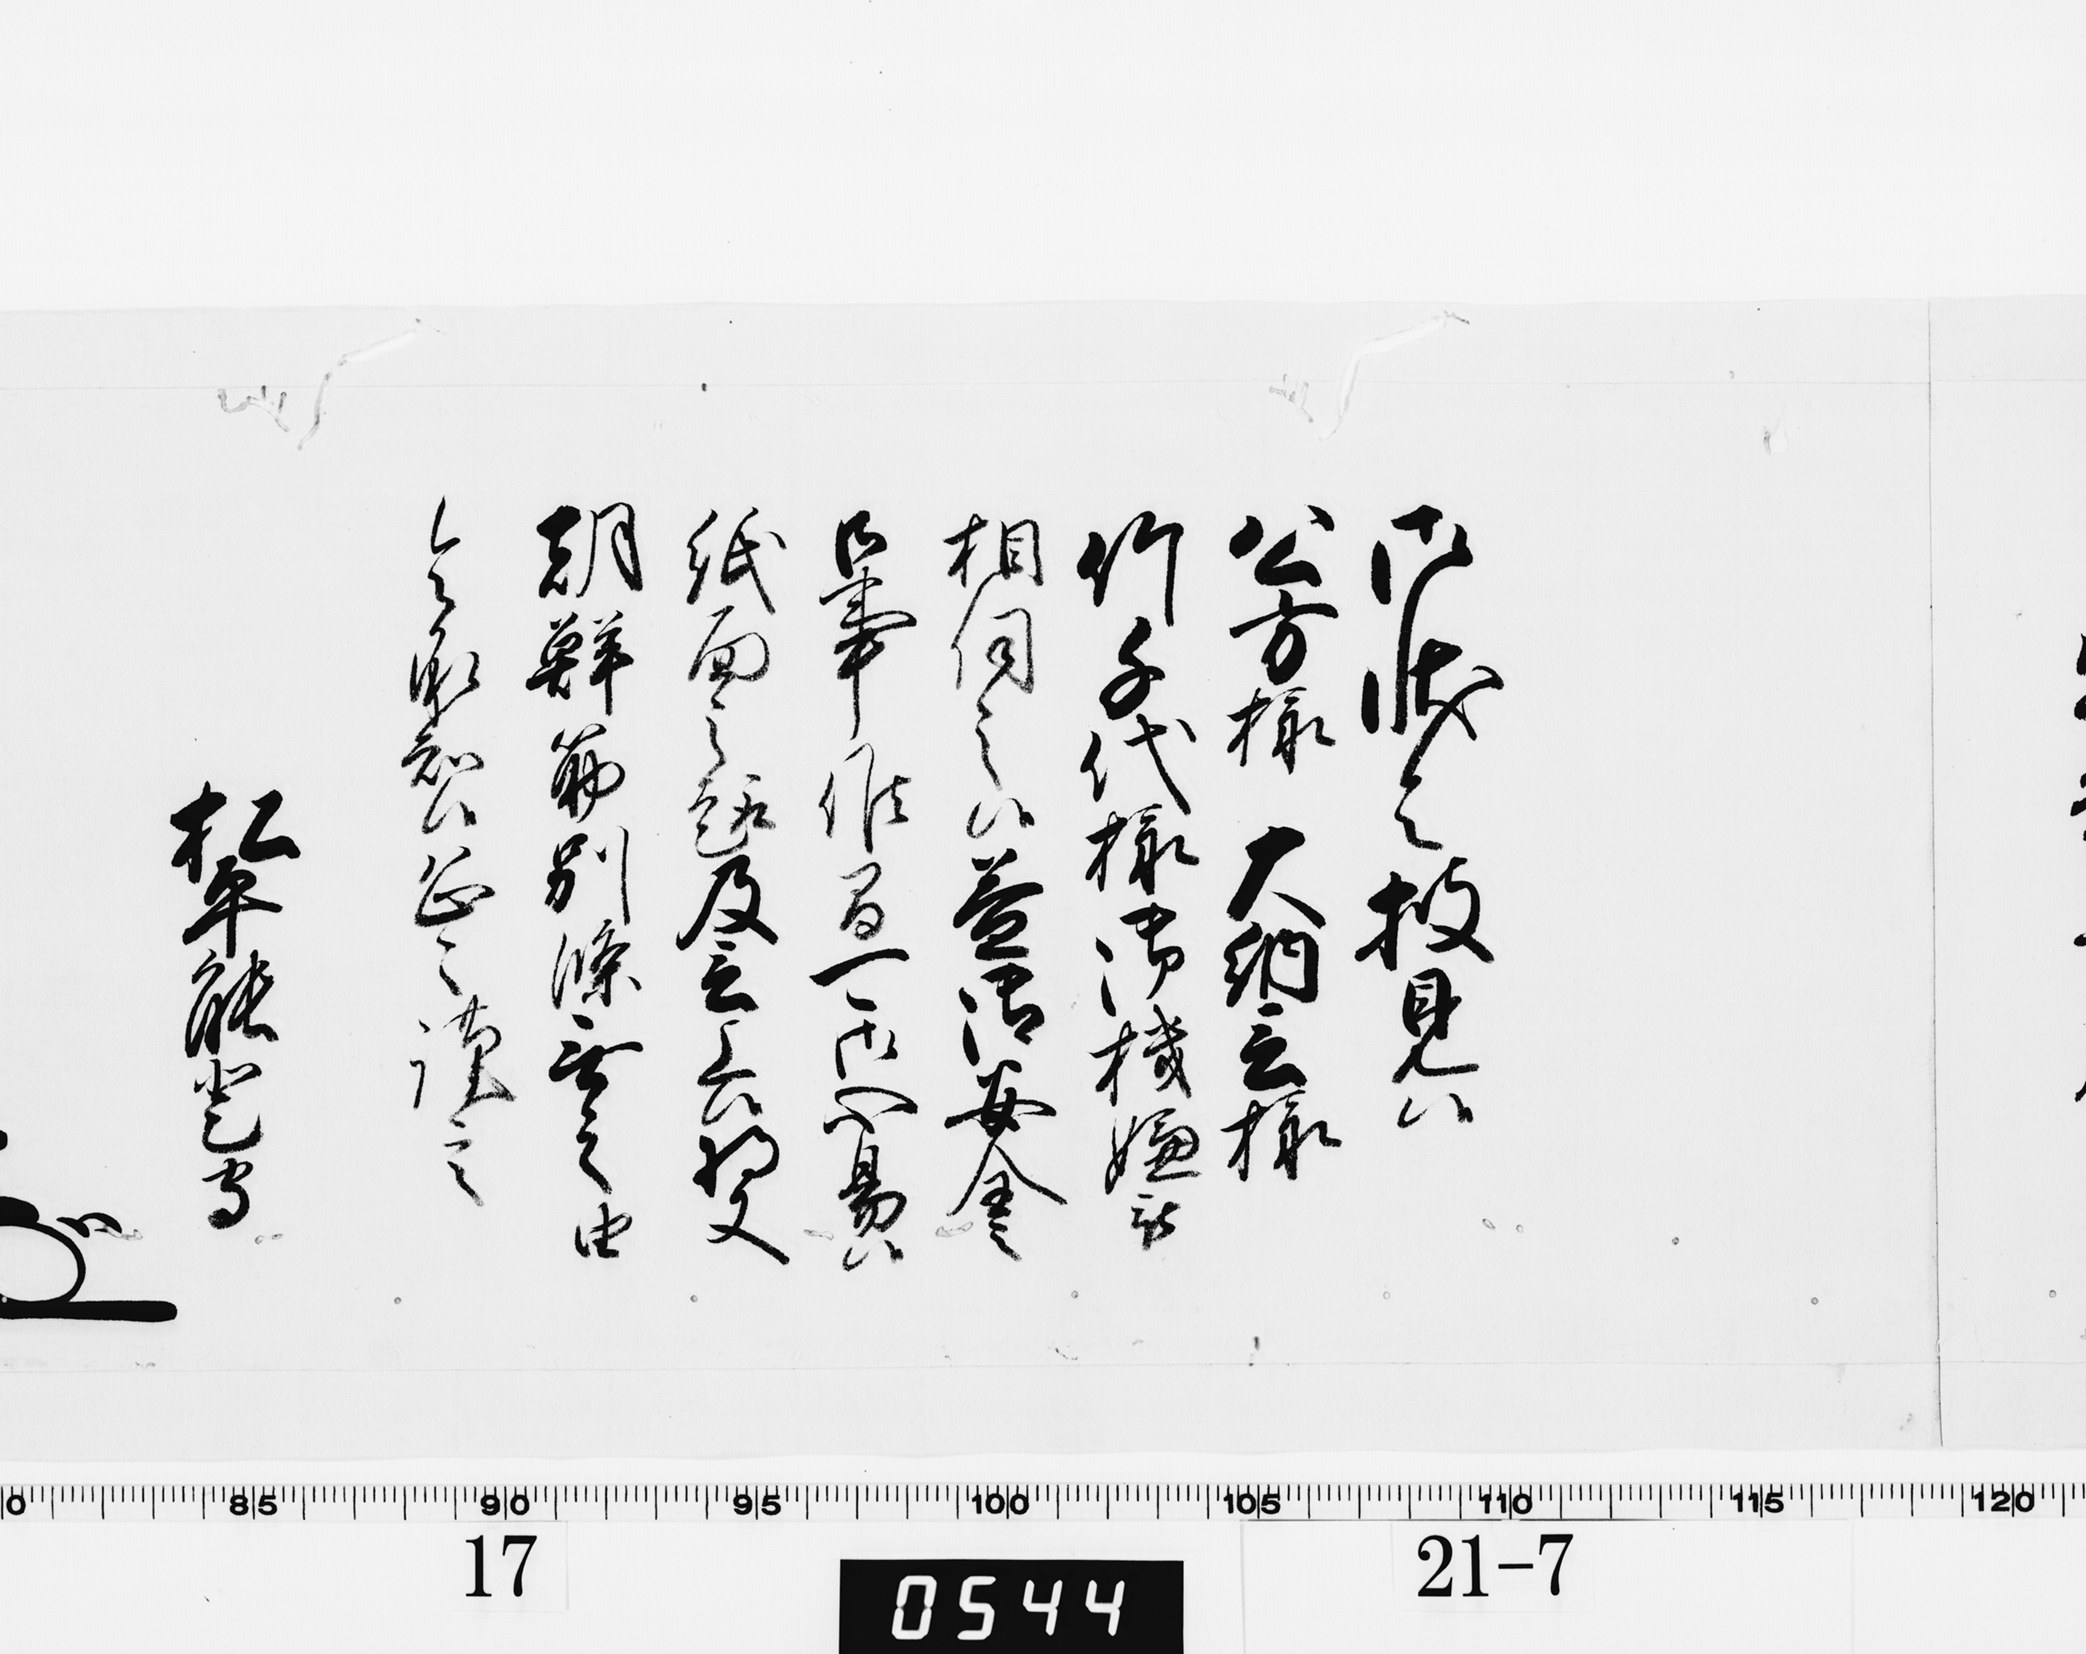 御状令披見候
公方様 大納言様
竹千代様御機嫌被
相伺之候益御安全
御事候間可御心易候
紙面之趣及言上候将又
朝鮮筋別條無之由
令承知候恐々謹言
松平能登守
85
90
95
100
105
110
115
120
17
21-7
0544